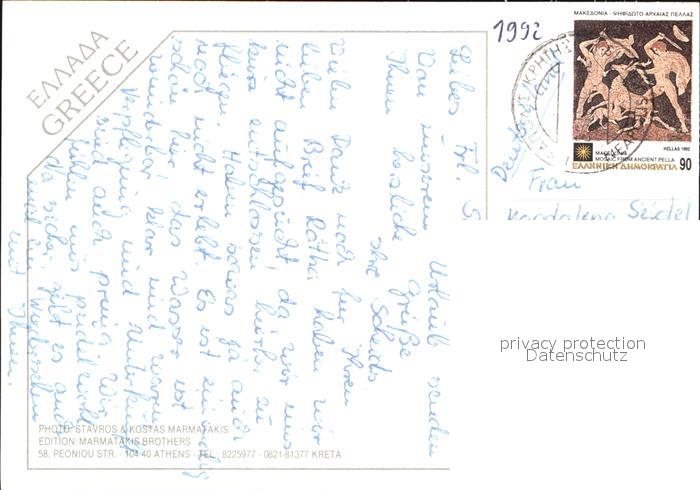 ΕΛΛΑΔΑ
GREECE
1992
ΜΑΚΕΔΟΝΙΑ - ΨΗΦΙΔΩΤΟ ΑΡΧΑΙΑΣ ΠΕΛΛΑΣ
HELLAS 1992
MACEDONIA
MOSAIC FROM ANCIENT PELLA
ΕΛΛΗΝΙΚΗ ΔΗΜΟΚΡΑΤΙΑ 90
ΚΡΗΤΗΣ
Frau
Magdalena Seidel
Liebes Frl. S
Von unserem Urlaub senden
Ihnen herzliche Grüße
Ihre Scheids.
Vielen Dank noch für Ihren
lieben Brief. Rötha haben wir
nicht aufgesucht da wir uns
kurz entschlossen hierher zu
fliegen. Haben sowas ja auch
noch nicht erlebt. Es ist einmalig
schön hier das Wasser ist
wunderbar klar und warm
Verpflegung und Unterkunft
sind auch prima. Wir
fühlen uns pudelwohl
da sicher gibt es auch
mal ein Wiedersehen
mit Ihnen.
PHOTO: STAVROS & KOSTAS MARMATAKIS
EDITION: MARMATAKIS BROTHERS
58, PEONIOU STR. - 104 40 ATHENS - TEL.: 8225977 - 0821-81377 KRETA
privacy protection
Datenschutz